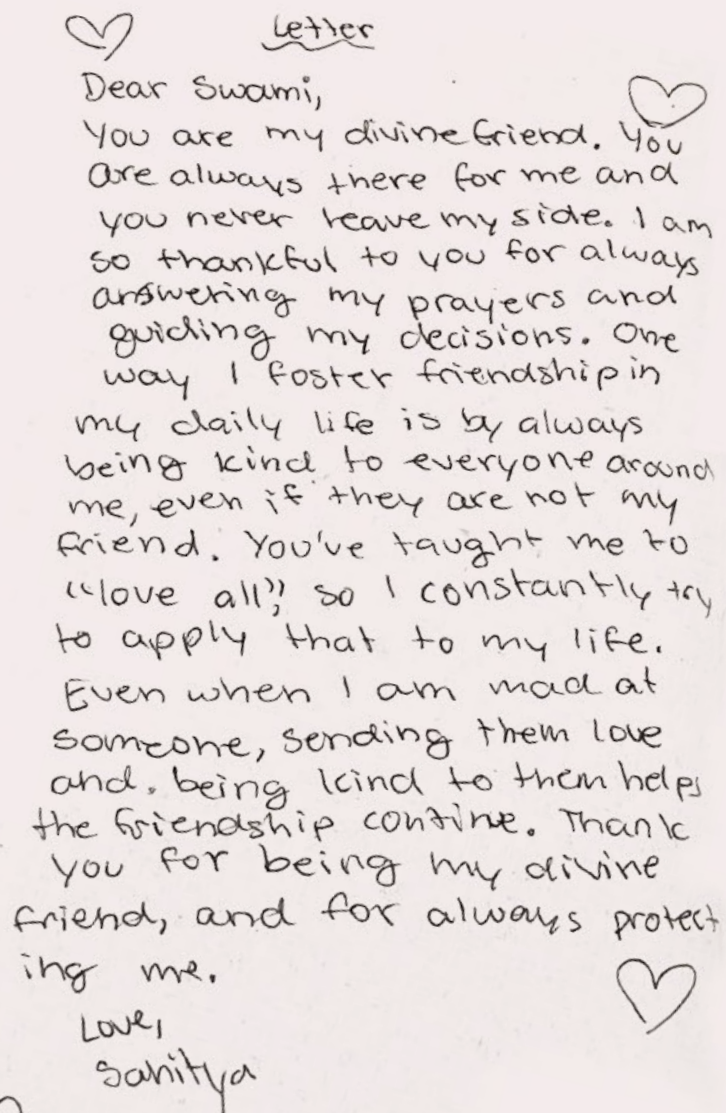 Letter
Dear Swami,
You are my divine friend. You
are always there for me and
you never leave my side. I am
so thankful to you for always
answering my prayers and
guiding my decisions. One
way I foster friendship in
my daily life is by always
being kind to everyone around
me, even if they are not my
friend. You've taught me to
"love all", so I constantly try
to apply that to my life.
Even when I am mad at
someone, sending them love
and. being kind to them helps
the friendship contine. Thank
you for being my divine
friend, and for always protect
ing me.
Love,
Sahitya